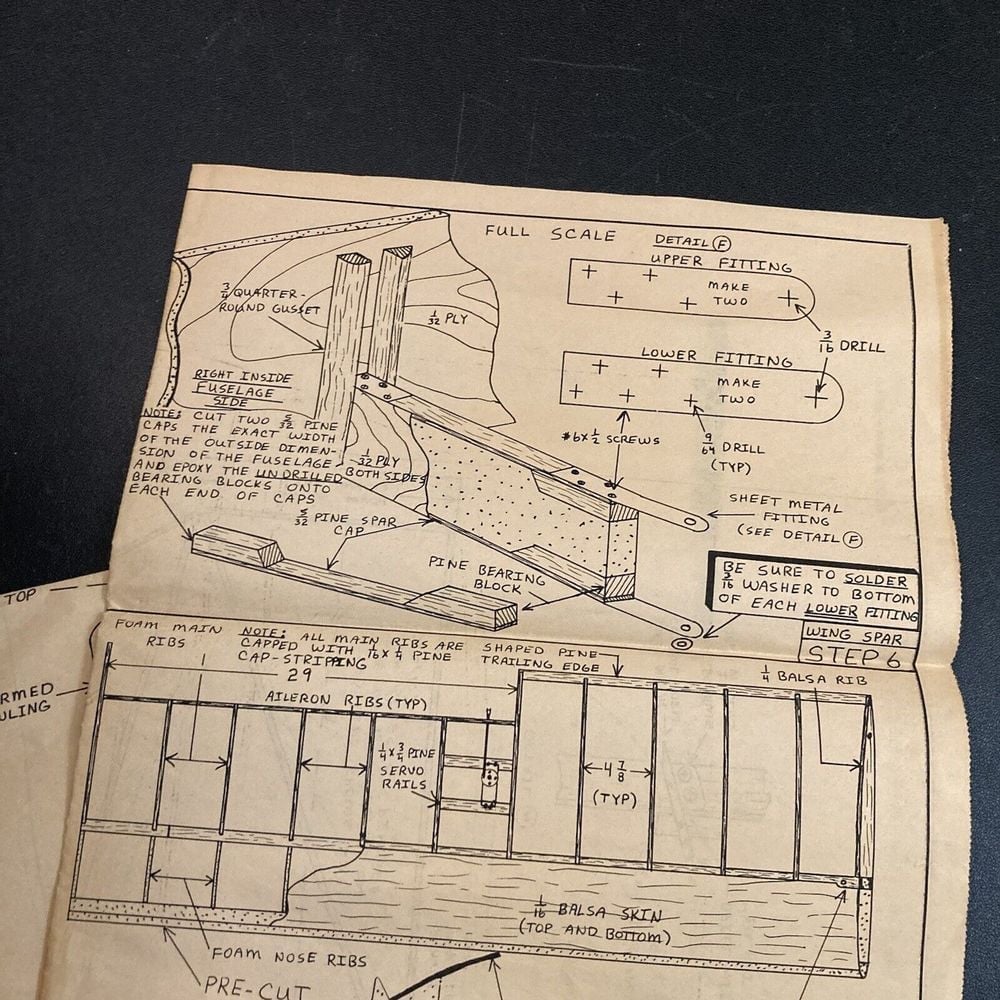 FULL SCALE
DETAIL Ⓕ
UPPER FITTING
MAKE
TWO
3/16 DRILL
LOWER FITTING
MAKE
TWO
#6 x 1/2 SCREWS
9/64 DRILL
(TYP)
3/4 QUARTER-
ROUND GUSSET
1/32 PLY
RIGHT INSIDE
FUSELAGE
SIDE
NOTE: CUT TWO 5/32 PINE
CAPS THE EXACT WIDTH
OF THE OUTSIDE DIMEN-
SION OF THE FUSELAGE
AND EPOXY THE UNDRILLED
BEARING BLOCKS ONTO
EACH END OF CAPS
1/32 PLY
BOTH SIDES
5/32 PINE SPAR
CAP
PINE BEARING
BLOCK
SHEET METAL
FITTING
(SEE DETAIL Ⓕ
BE SURE TO SOLDER
3/16 WASHER TO BOTTOM
OF EACH LOWER FITTING
WING SPAR
STEP 6
TOP
RMED
ULING
FOAM MAIN
RIBS
NOTE: ALL MAIN RIBS ARE
CAPPED WITH 1/16 x 1/4 PINE
CAP-STRIPPING
SHAPED PINE
TRAILING EDGE
1/4 BALSA RIB
29
AILERON RIBS (TYP)
1/4 x 3/4 PINE
SERVO
RAILS
4 7/8
(TYP)
1/16 BALSA SKIN
(TOP AND BOTTOM)
FOAM NOSE RIBS
PRE-CUT